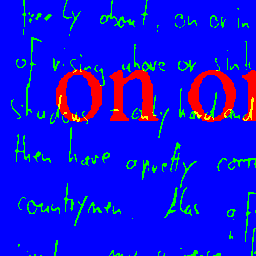 freely about, on or in
of rising above or sink
on or
Shudous - only hard and
then have a pretty corr
countrymen. Alas, a f